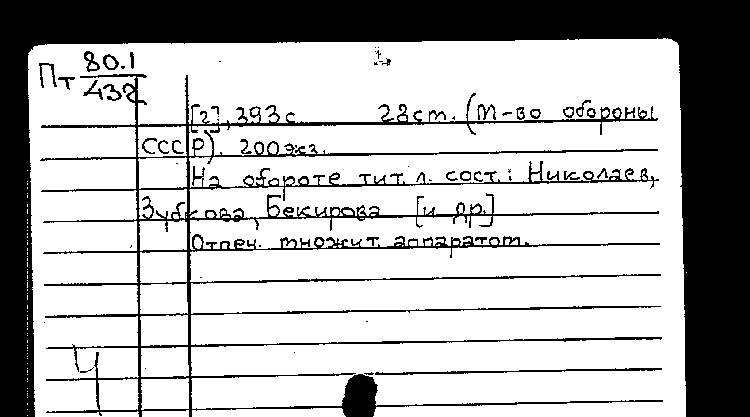 Пт 80.1
432
[2], 393 с. 28 ст. (М-во обороны
СССР). 200 экз.
На обороте тит. л. сост.: Николаев,
Зубкова, Бекирова [и др.]
Отпеч. множит. аппаратом.
Ч